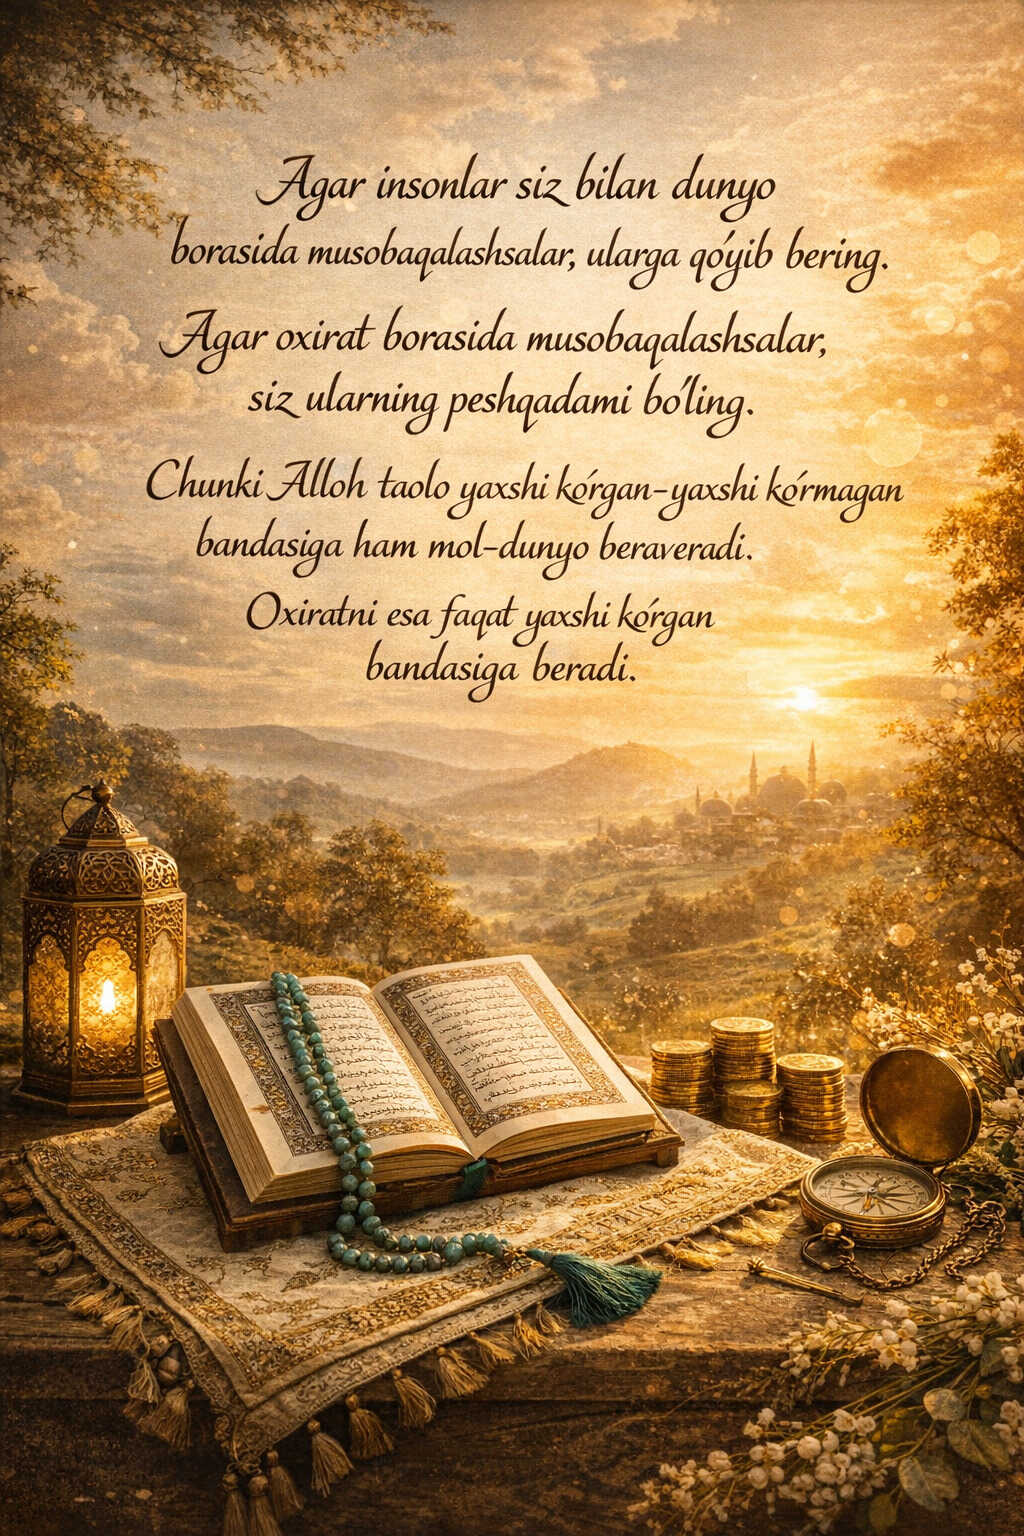 Agar insonlar siz bilan dunyo
borasida musobaqalashsalar, ularga qóyib bering.
Agar oxirat borasida musobaqalashsalar,
siz ularning peshqadami bóling.
Chunki Alloh taolo yaxshi kórgan-yaxshi kórmagan
bandasiga ham mol-dunyo beraveradi.
Oxiratni esa faqat yaxshi kórgan
bandasiga beradi.